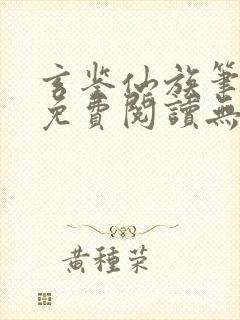 玄鉴仙族筆
免費閱讀無
黃種荣